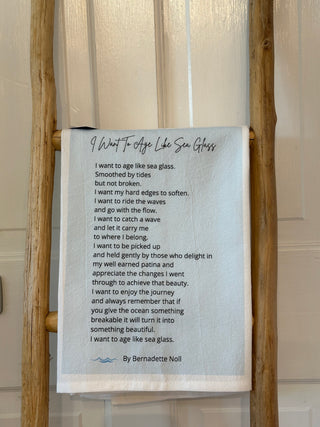 I Want To Age Like Sea Glass
I want to age like sea glass.
Smoothed by tides
but not broken.
I want my hard edges to soften.
I want to ride the waves
and go with the flow.
I want to catch a wave
and let it carry me
to where I belong.
I want to be picked up
and held gently by those who delight in
my well earned patina and
appreciate the changes I went
through to achieve that beauty.
I want to enjoy the journey
and always remember that if
you give the ocean something
breakable it will turn it into
something beautiful.
I want to age like sea glass.
By Bernadette Noll